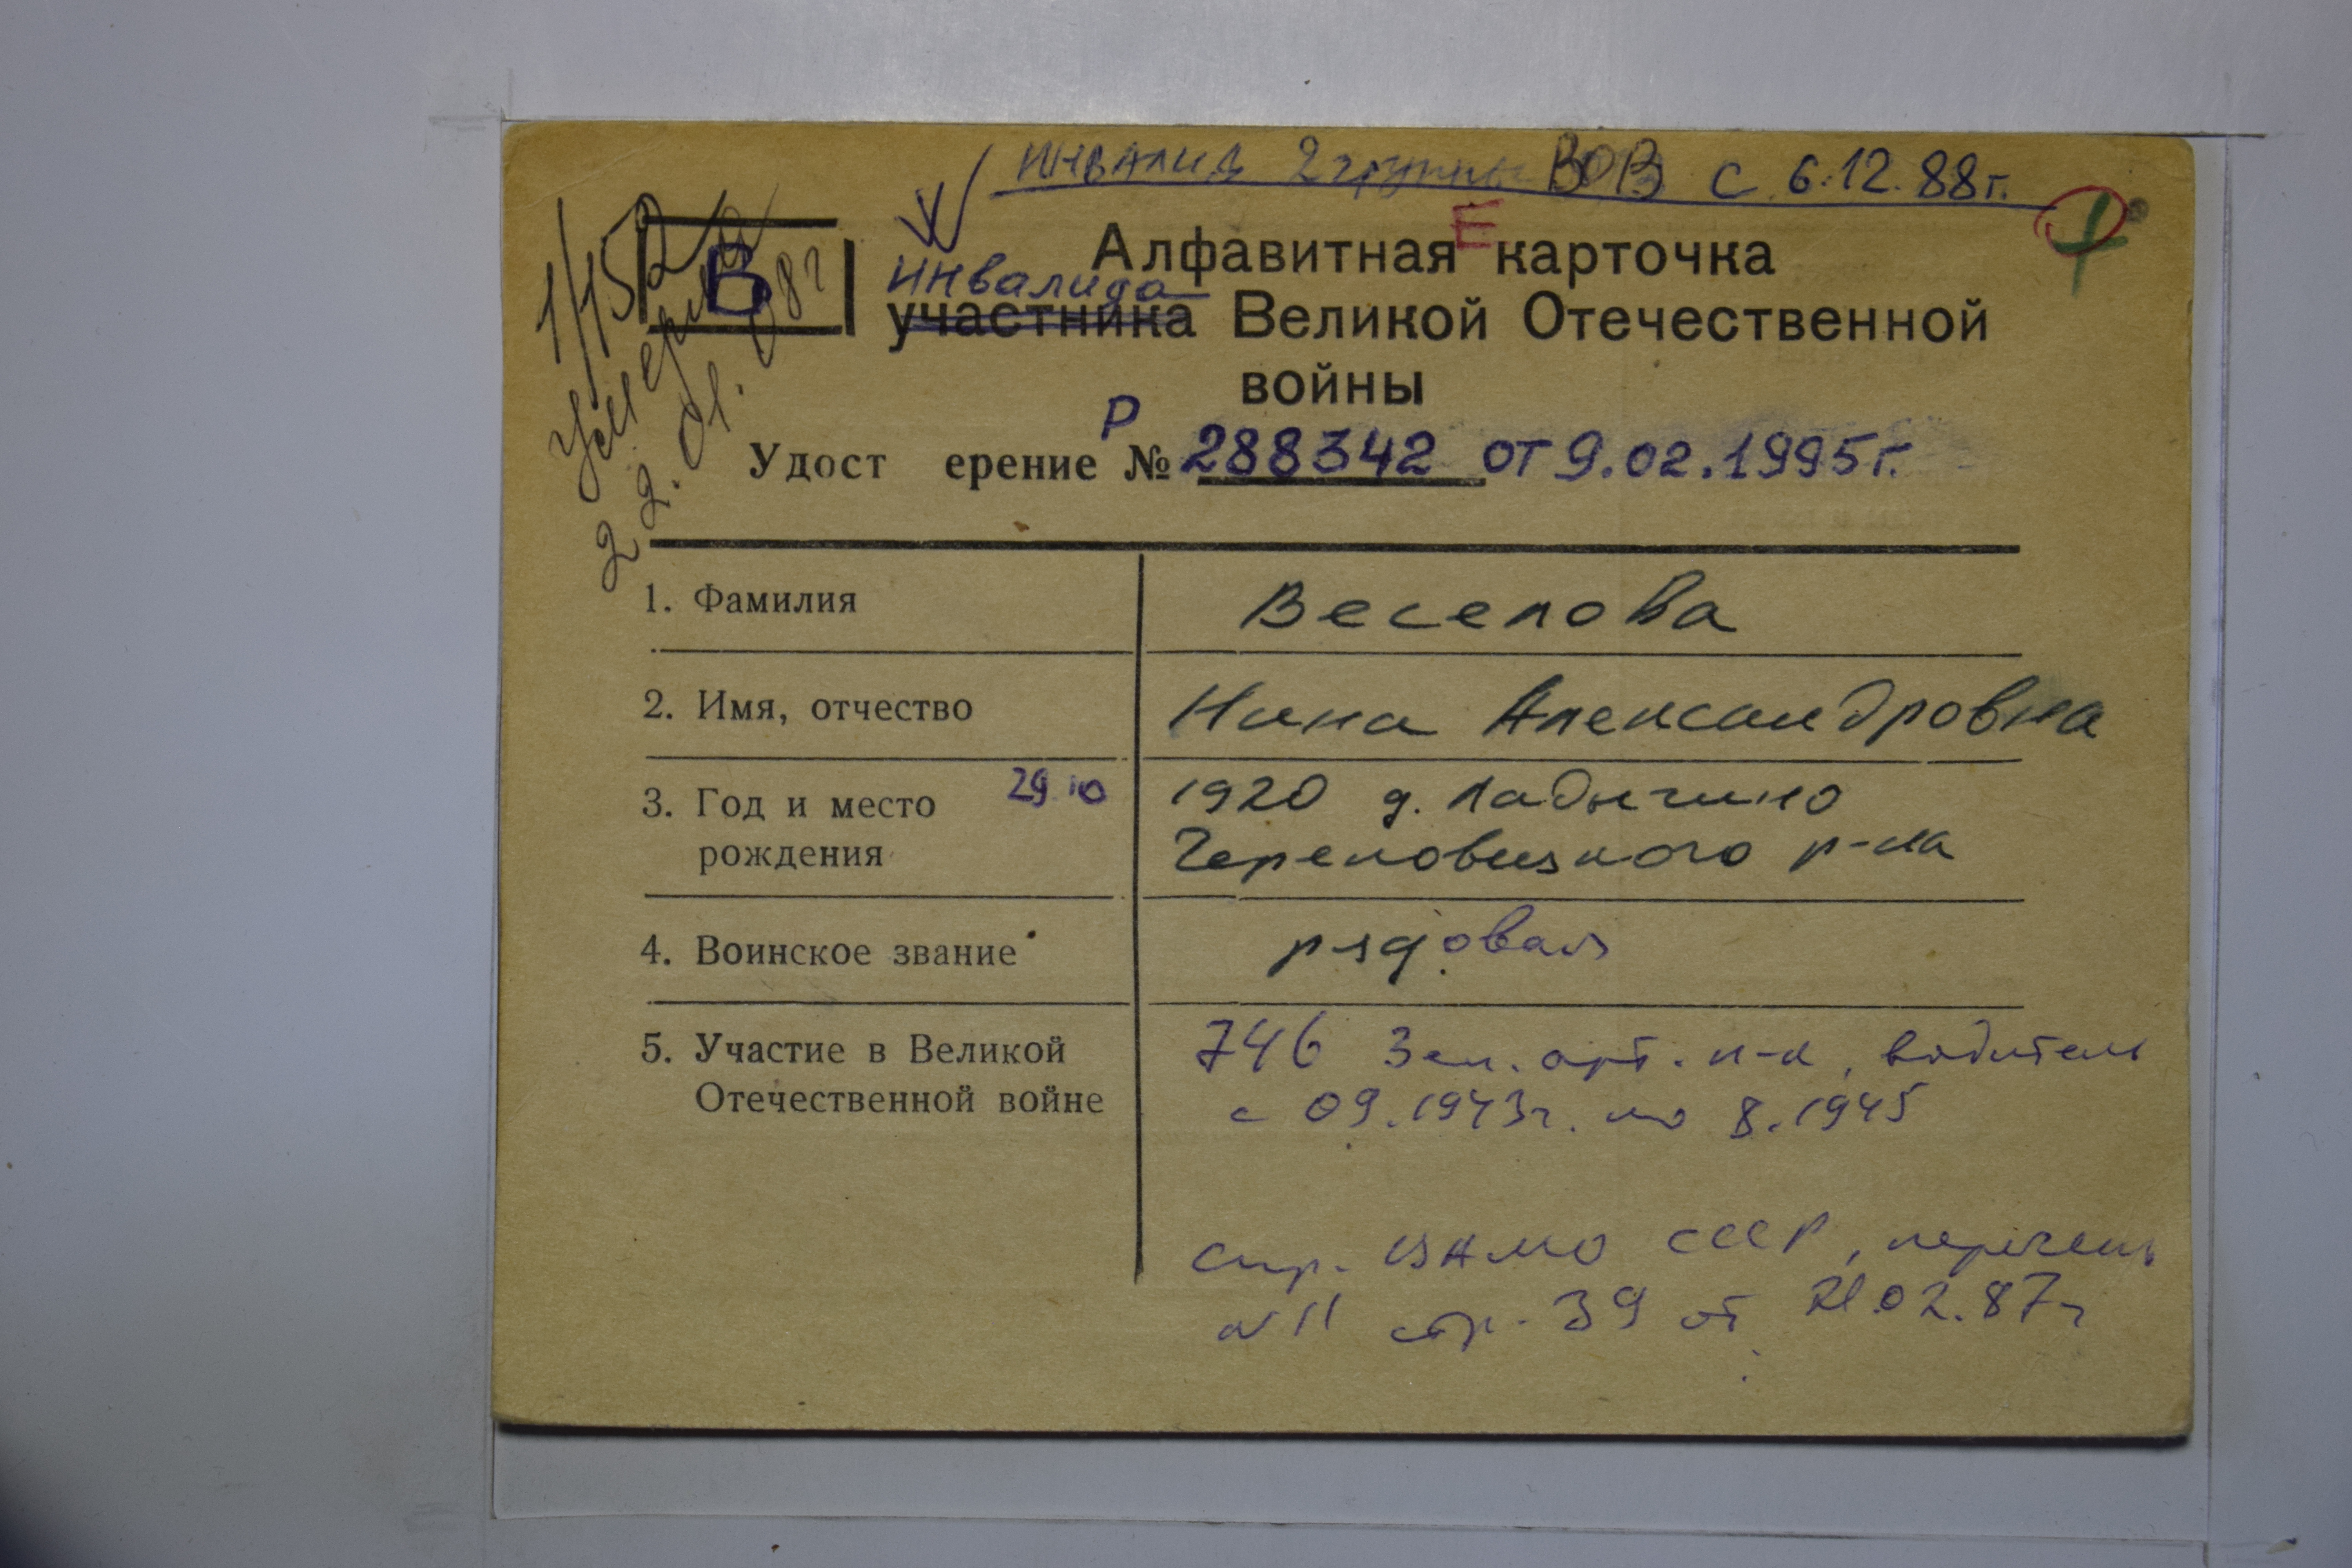 инвалид 2 группы ВОВ с 6.12.88г.
1/152
умерла
22.01.08г
В
Е
Алфавитная карточка
инвалида
участника Великой Отечественной
войны
Р
Удост ерение № 288342 от 9.02.1995г.
1. Фамилия Веселова
2. Имя, отчество Нина Александровна
3. Год и место 29.10 1920 д. Ладыгино
рождения Череповецкого р-на
4. Воинское звание рядовая
5. Участие в Великой 746 Зен. арт. п-к, водитель
Отечественной войне с 09.1943г. по 8.1945
спр. ЦАМО СССР, перечень
N 11 стр. 39 от 21.02.87г